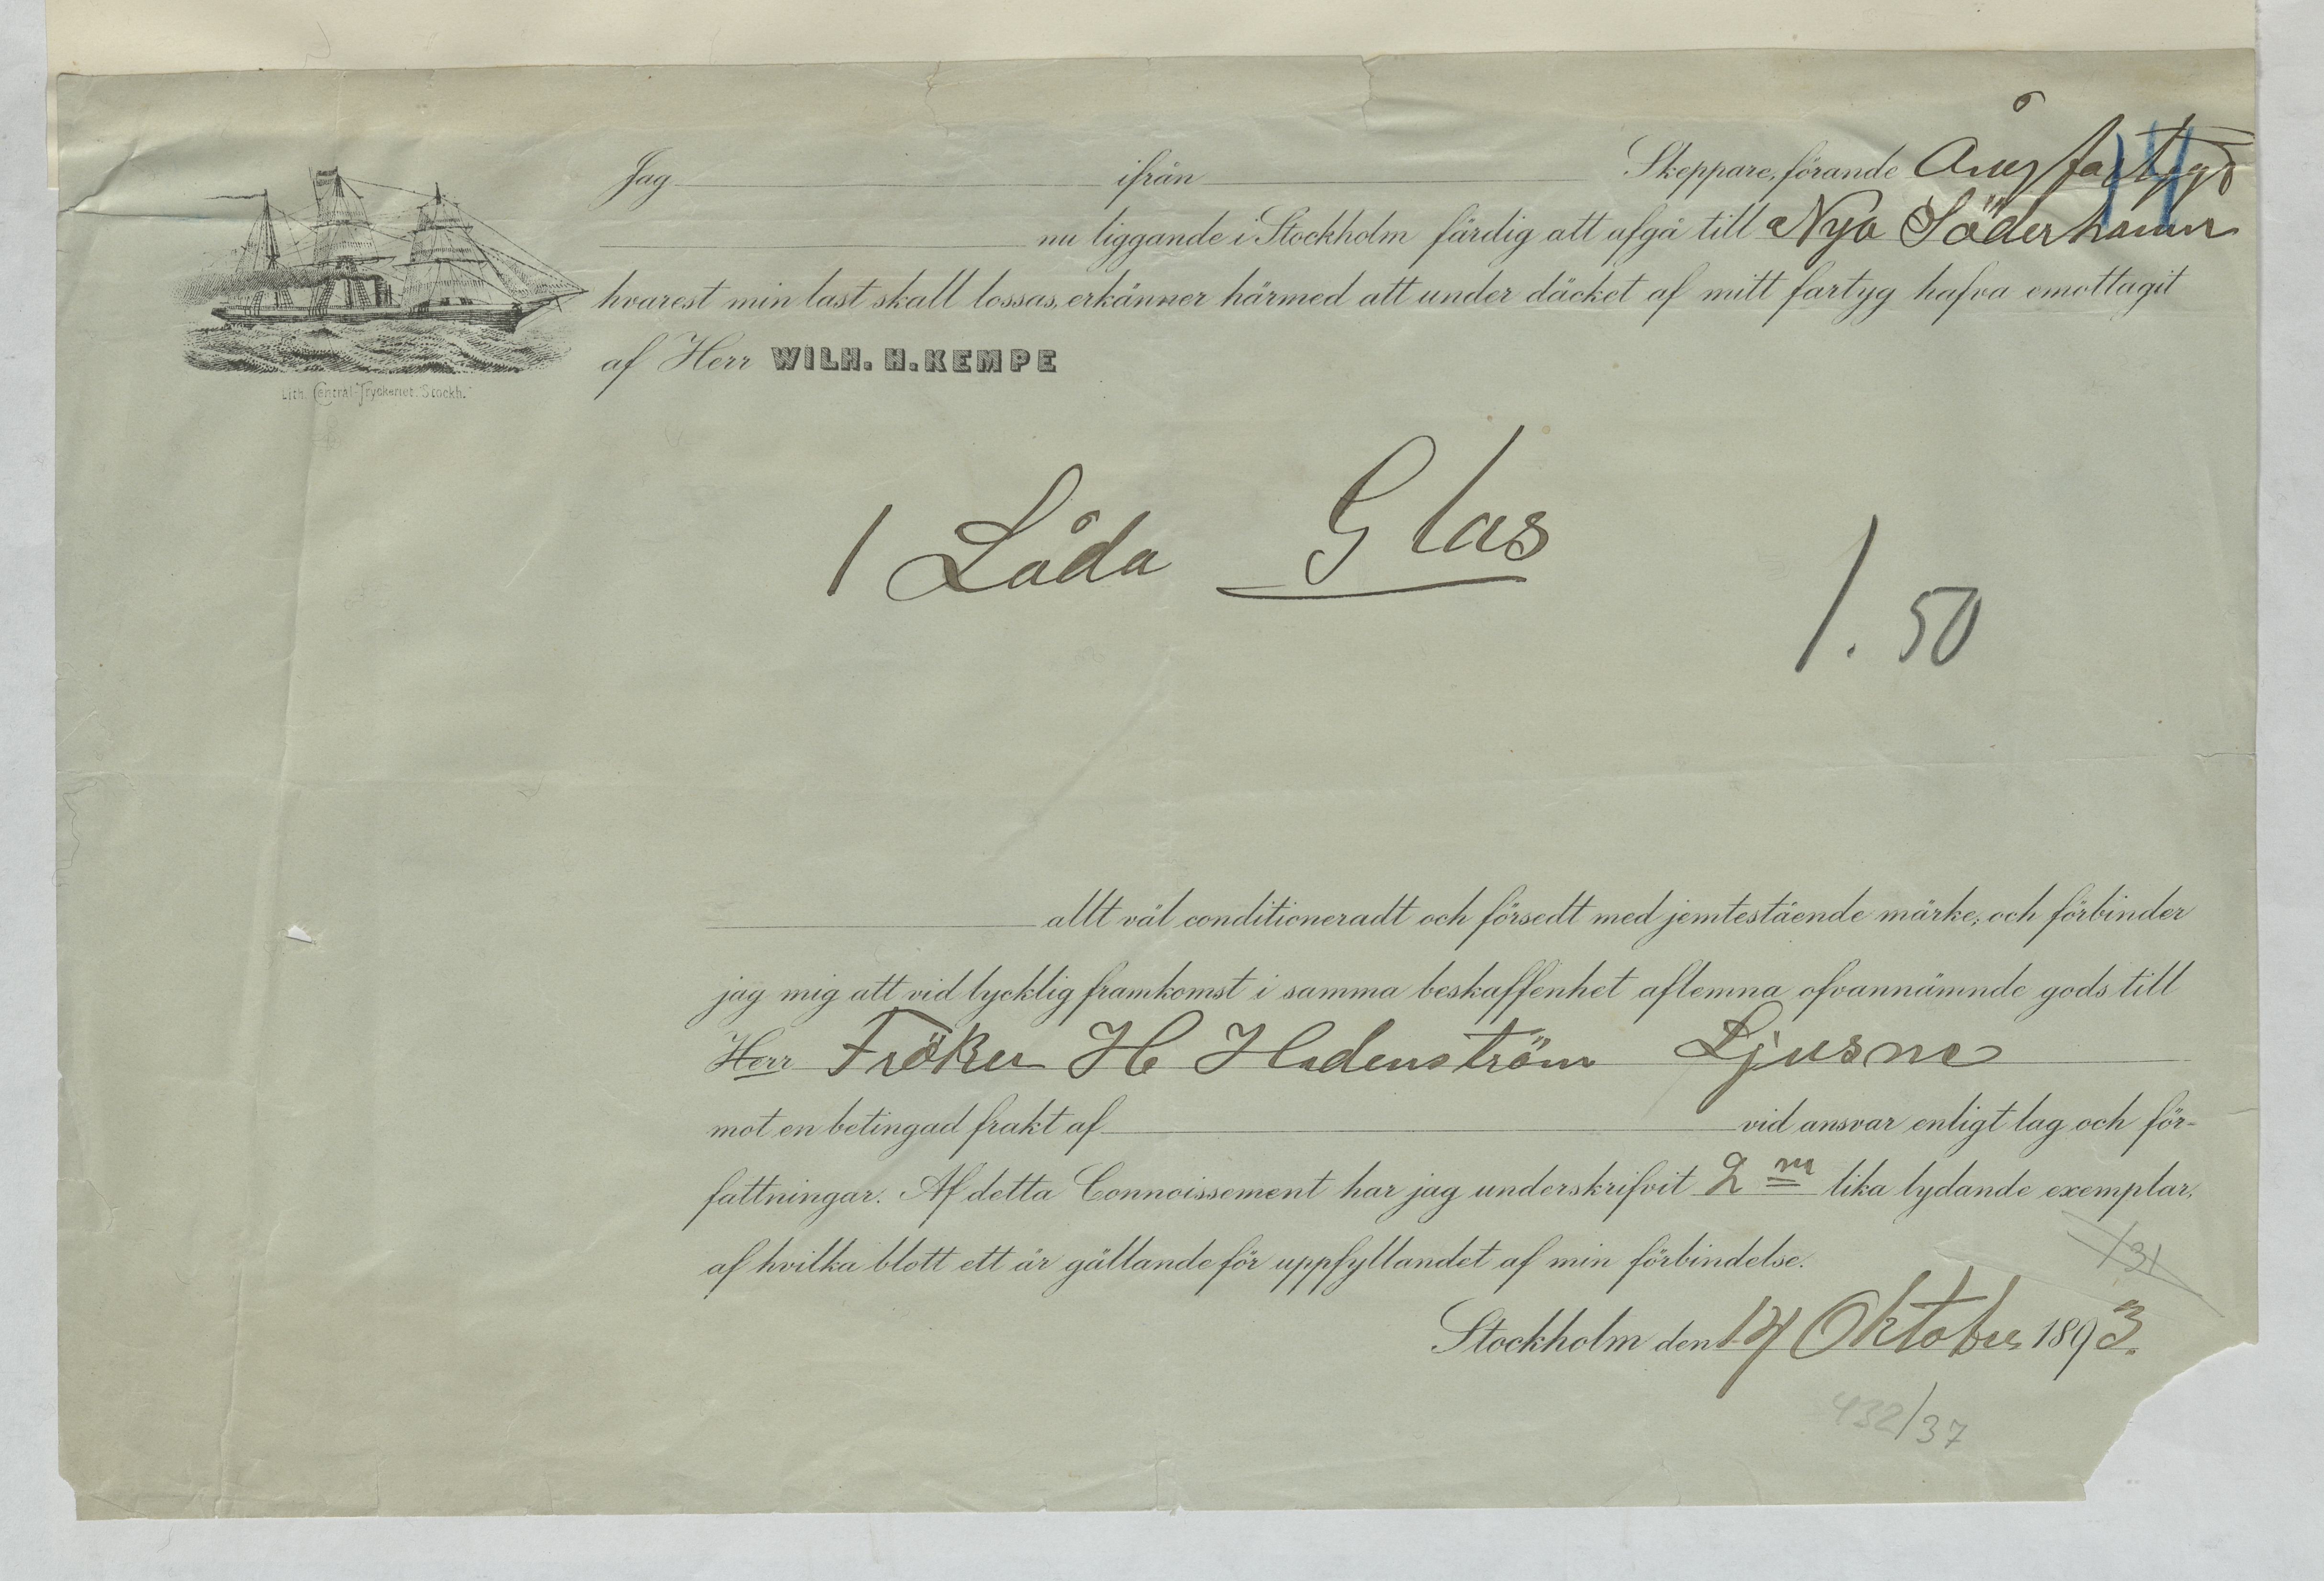 Jag ifrån Skeppare, förande Ångfartyget
14
nu liggande i Stockholm färdig att afgå till Nya Söderhamn
hvarest min last skall lossas, erkänner härmed att under däcket af mitt fartyg hafva emottagit
af Herr WILH. H. KEMPE
Lith. Central-Tryckeriet. Stockh.
1 Låda Glas
1. 50
allt väl conditioneradt och försedt med jemtestående märke, och förbinder
jag mig att vid lycklig framkomst i samma beskaffenhet aflemna ofvannämnde gods till
Herr Fröken H Hedenström Ljusne
mot en betingad frakt af vid ansvar enligt lag och för-
fattningar. Af detta Connoissement har jag underskrifvit 2 lika lydande exemplar,
af hvilka blott ett är gällande för uppfyllandet af min förbindelse.
Stockholm den 14 Oktober 1893.
432/37